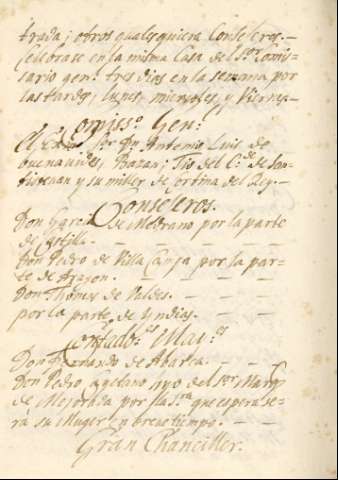 trada; otros qualesquiera Consejeros.—
Celebrase en la misma Casa del S.or Comis=
sario gen.l tres dias en la semana por
las tardes, lunes, miercoles, y Viernes.—
Comiss.o Gen:
El Ex.mo Señor Dn. Antonio Luis de
buenauides, Bazan; Tio del C.de de San-
tisteuan y su miller de Cortina del Rey.—
Consejeros.
Don Garcia de Medrano por la parte
de Castilla.—
Don Pedro de Villa Canpa por la par-
te de Aragon.
Don Thomas de Valdes.—
por la parte de Yndias.—
Contad.es May.es
Don Fernando de Abarca.—
Don Pedro Cayetano hijo del S.or Marq.s
de Mejorada por la S.ra que espera se-
rá su Muger en breue tiempo.—
Gran Chanciller.